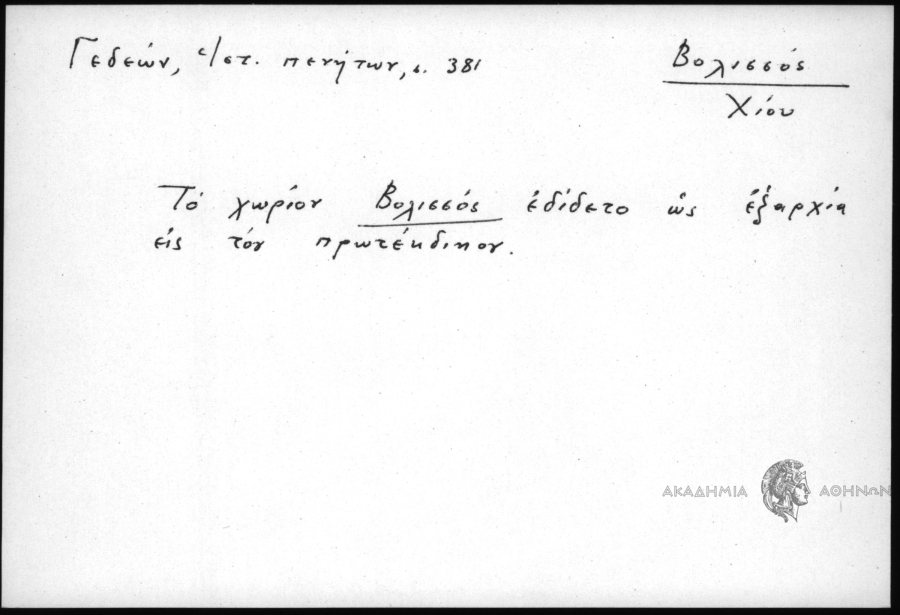 Γεδεών, Ἱστ. πενήτων, σ. 381
Βολισσός
Χίου
Τό χωρίον Βολισσός ἐδίδετο ὡς ἐξαρχία
εἰς τόν πρωτέκδικον.
ΑΚΑΔΗΜΙΑ ΑΘΗΝΩΝ